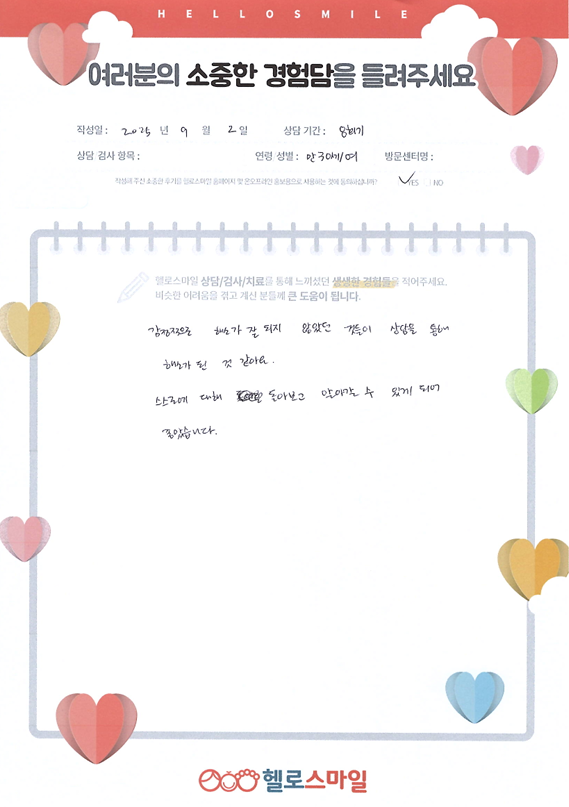 HELLOSMILE
여러분의 소중한 경험담을 들려주세요
작성일 : 2025 년 9 월 2 일 상담 기간 :
상담 검사 항목 : 연령 성별 : 만 30세/여 방문센터명 :
작성해 주신 소중한 후기를 헬로스마일 홈페이지 및 온오프라인 홍보용으로 사용하는 것에 동의하십니까? YES NO
헬로스마일 상담/검사/치료를 통해 느끼셨던 생생한 경험들을 적어주세요.
비슷한 어려움을 겪고 계신 분들께 큰 도움이 됩니다.
감정적으로 해소가 잘 되지 않았던 것들이 상담을 통해
해소가 된 것 같아요.
스스로에 대해 돌아보고 알아갈 수 있게 되어
좋았습니다.
헬로스마일